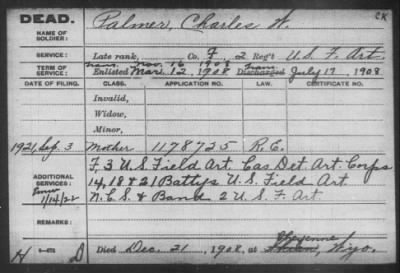 DEAD.
NAME OF SOLDIER: Palmer, Charles W. CK
SERVICE: Late rank, Co. F, 2 Reg't U.S. F. Art.
Trans. Nov. 16 1908
TERM OF SERVICE: Enlisted Mar. 12, 1908 Discharged July 17, 1908
DATE OF FILING. CLASS. APPLICATION NO. LAW. CERTIFICATE NO.
Invalid,
Widow,
Minor,
1921, Sep. 3 Mother 1178725 R.E.
ADDITIONAL SERVICES: F, 3 U.S. Field Art. Cas. Det. Art. Corps
14, 18 & 21 Battys U.S. Field Art
1/14/22 N.C.S. & Band 2 U.S. F. Art
REMARKS:
Cheyenne
H - D Died Dec. 21, 1908, at Wyo.